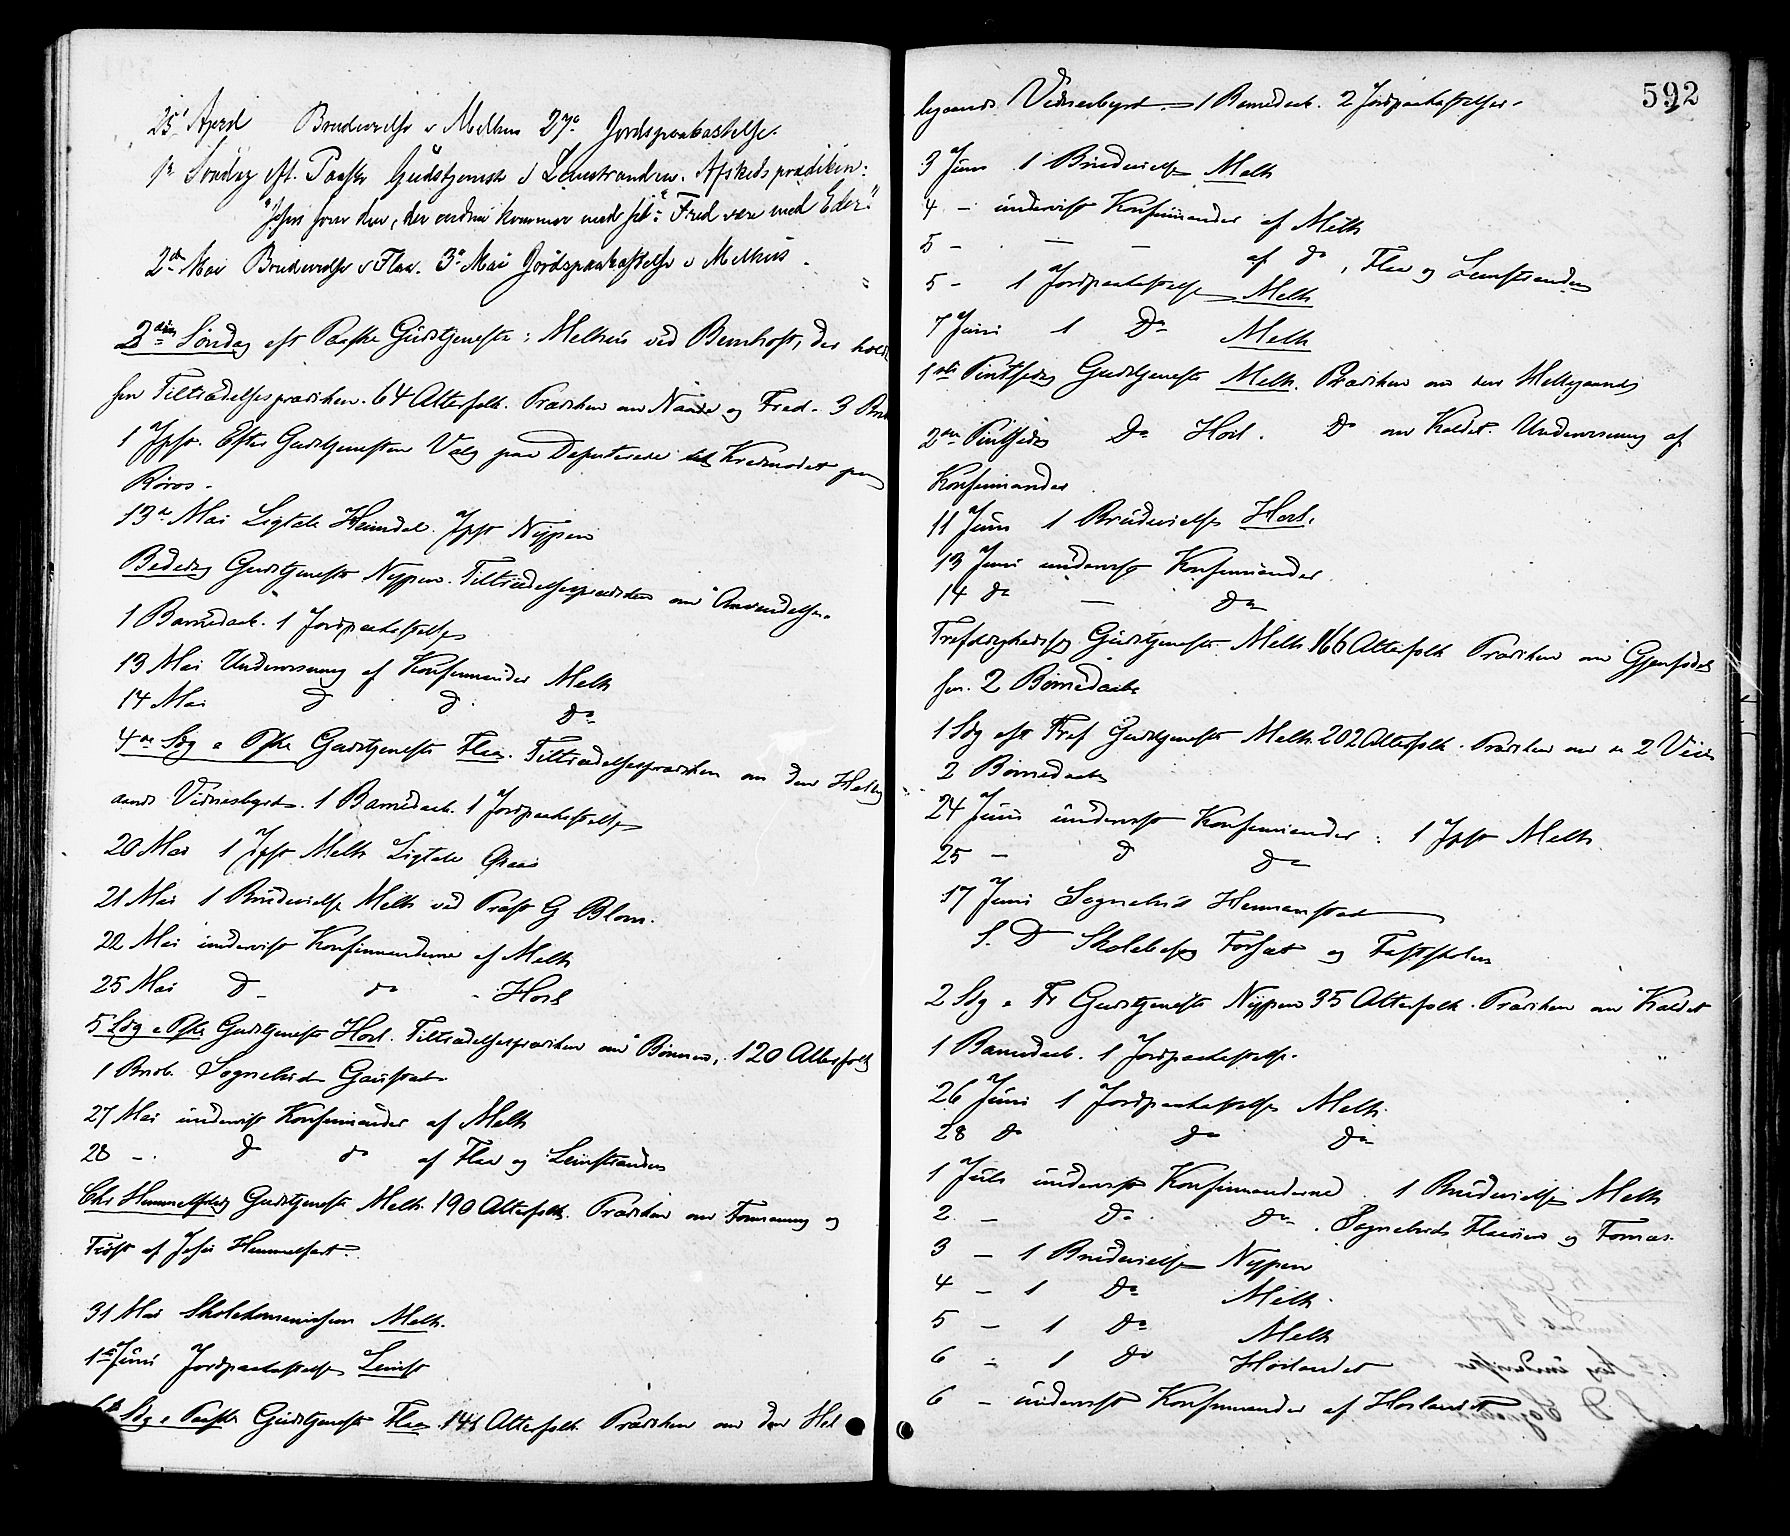 25' April Brudevielse i Melhus 27de Jordspaakastelse.
1ste Søndag eft. Paaske Gudstjeneste i Leinstranden. Afskedsprædiken:
"Jesus som den, der endnu kommer med sit: Fred være med Eder"
2den Mai Brudevielse i Flaa. 3de Mai Jordspaakastelse i Melhus.
2den Søndag eft Paaske Gudstjeneste i Melhus ved Bernhoft, der holdt
sin Tiltrædelsesprædiken. 64 Alterfolk. Prædiken om Naade og Fred. 3
1 Jpkst. Efter Gudstjenesten Valg paa Deputerede til Kredsmødet paa
Røros.
13de Mai Ligtale Heimdal. Jpkst Nypen
Bededag Gudstjeneste Nypen. Tiltrædelsesprædiken om Omvendelse.
1 Barnedaab. 1 Jordpaakastelse
13 Mai Undervisning af Konfirmander Melh
14 Mai Do Do Do
4de Sdg e Pske Gudstjeneste Flaa. Tiltrædelsesprædiken om den Hellig
aands Vidnesbyrd. 1 Barnedaab. 1 Jordpaakastelse
20 Mai 1 Jpkst Melh Ligtale
21 Mai 1 Brudevielse Melh ved Præst G Blom.
22 Mai undervist Konfirmanderne af Melh
25 Mai Do do - Høil
5 Sdg e Pske Gudstjeneste Høil. Tiltrædelsesprædiken om Bønnen, 120 Altersfolk
1 Sognebud Gaustad
27 Mai undervist Konfirmander af Melh
28 - do do af Flaa og Leinstranden
Chr Himmelfartsdag Gudstjeneste Melh. 190 Altersfolk. Prædiken om Formaning og
Trøst af Jesu Himmelfart.
31 Mai Skolekommission Melh.
1ste Juni Jordpaakastelse Leinst
6te Sdg e Paaske Gudstjeneste Flaa. 141 Altersfolk. Prædiken om den Hel
592
ligaands Vidnesbyrd. 1 Barnedaab. 2 Jordpaakastelser.
3 Juni 1 Brudevielse Melh
4 - undervist Konfirmander af Melh
5 - - - af do, Flaa og Leinstranden
5 - 1 Jordpaakastelse Melh
7 Juni 1 Do Melh
1ste Pintsedag Gudstjeneste Melh. Prædiken om den Helligaand
2den Pintsedag Do Høil. Do om Kaldet. Undervisning af
Konfirmander
11 Juni 1 Brudevielse Høil.
13 Juni undervist Konfirmander
14 do - do
Trefoldighedsfest Gudstjeneste Melh 166 Altersfolk Prædiken om Gjenfødel
sen. 2 Børnedaab
1 Sdg eft Tref Gudstjeneste Melh. 202 Altersfolk. Prædiken om de 2 Veie
2 Børnedaab
24 Juni undervist Konfirmander: 1 Jpkst Melh.
25 - d do
17 Juni Sognebud
S. D Skolebesøg og Fastskolen
2 Sdg e Tr Gudstjeneste Nypen 35 Altersfolk. Prædiken om Kaldet
1 Barnedaab. 1 Jordpaakastelse.
26 Juni 1 Jordpaakastelse Melh.
28 do do do
1 Juli undervist Konfirmanderne. 1 Brudevielse Melh
2 - Do Do. Sognebud og
3 - 1 Brudevielse Nypen
4 - 1 Do Melh.
5 - 1 Do Melh
6 - 1 Do Høilandet
6 - undervist Konfirmander af Høilandet